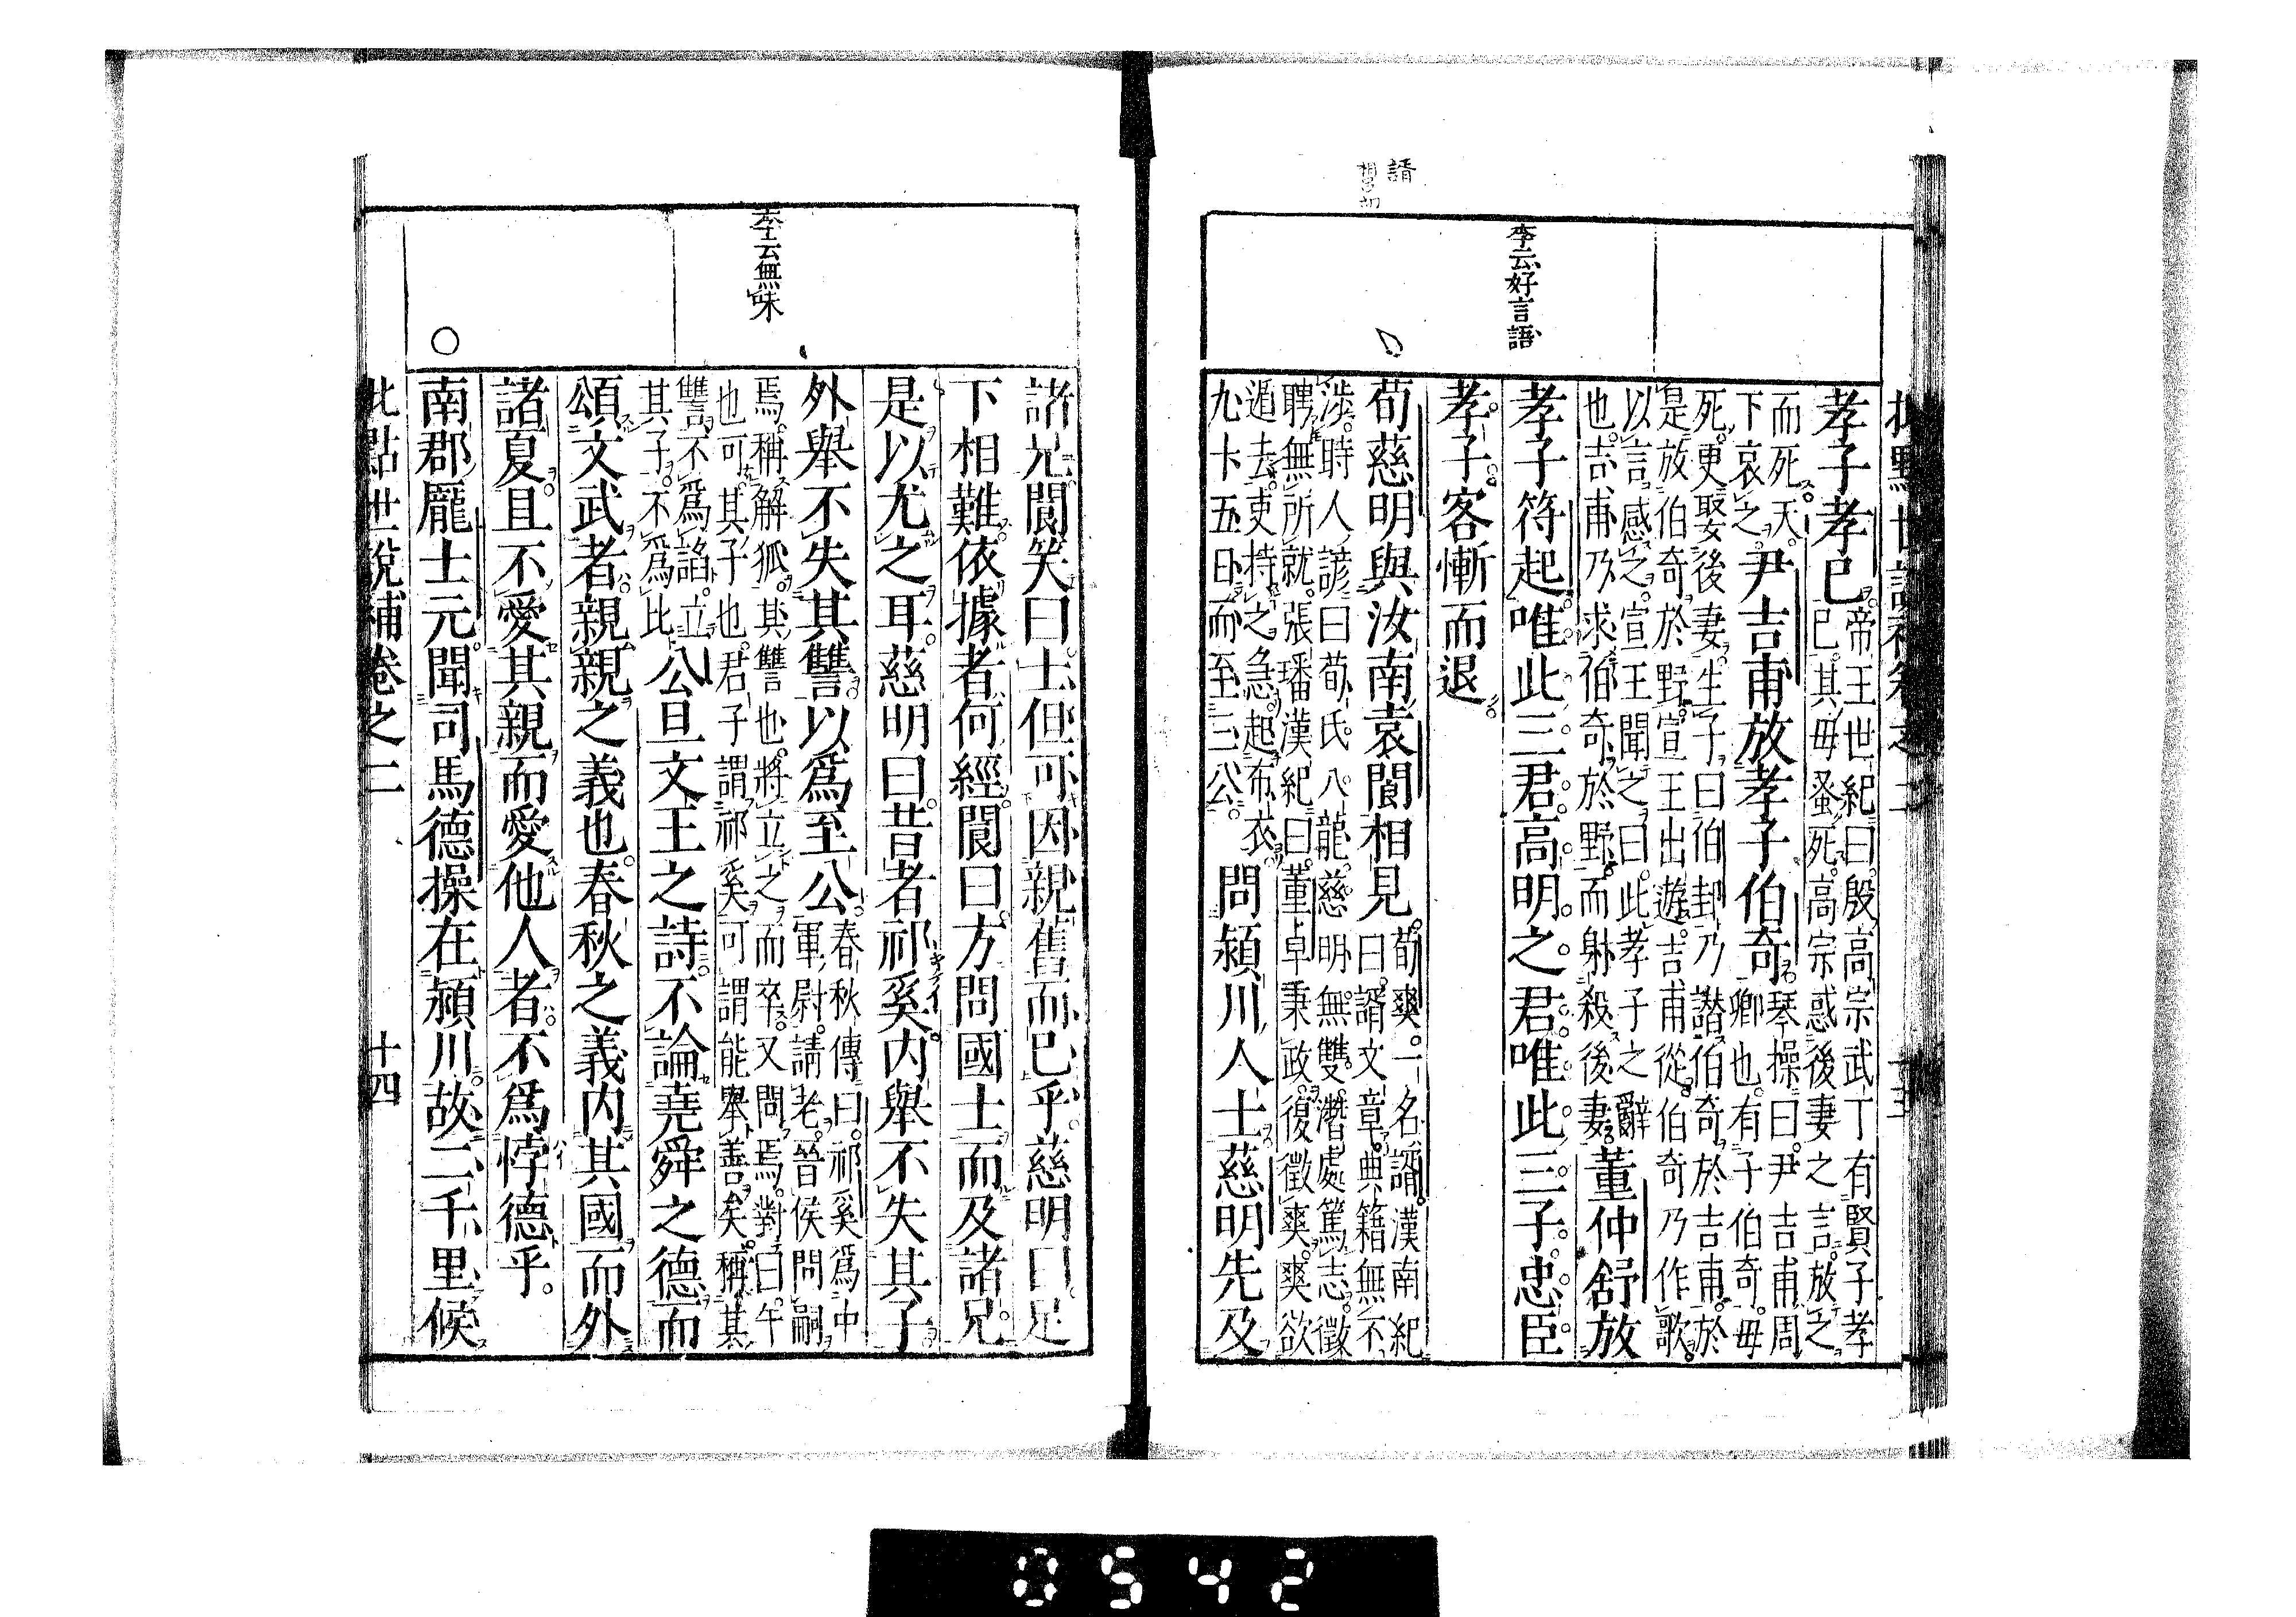 諝
李云好言語
孝子孝已。帝王世紀曰殷高宗武丁有賢子孝
已。其母蚤死。高宗惑後妻之言。放之
而死。天
下哀之。尹吉甫放孝子伯奇。琴操曰。尹吉甫周
卿也。有子伯奇。母
死。更娶後妻。生子曰伯邽。乃譖伯奇於吉甫。於
是放伯奇於野。宣王出遊。吉甫從。伯奇乃作歌。
以言感之。宣王聞之曰。此孝子之辭
也。吉甫乃求伯奇於野。而射殺後妻。董仲舒放
孝子符起。唯此三君。高明之君。唯此三子。忠臣
孝子。客慚而退。
荀慈明與汝南袁閬相見。荀爽。一名諝。漢南紀
曰。諝文章典籍無不
涉。時人諺曰荀氏八龍。慈明無雙。潛處篤志。徵
聘無所就。張璠漢紀曰。董卓秉政。復徵爽。爽欲
遁去。吏持之急。起布衣。
九十五日而至三公。問潁川人士。慈明先及
李云無味
諸兄。閬笑曰。士但可因親舊而已乎。慈明曰。足
下相難。依據者何經。閬曰。方問國士。而及諸兄。
是以尤之耳。慈明曰。昔者祁奚內舉不失其子。
外舉不失其讐。以爲至公。春秋傳曰。祁奚爲中
軍尉。請老。晉侯問嗣
焉。稱解狐。其讐也。將立之而卒。又問焉。對曰。午
也可。其子也。君子謂祁奚可謂能舉善矣。稱其
讐。不爲諂。立
其子。不爲比。公旦文王之詩。不論堯舜之德。而
頌文武者。親親之義也。春秋之義。內其國而外
諸夏。且不愛其親。而愛他人者。不爲悖德乎。
○
南郡龐士元。聞司馬德操在潁川。故二千里候
批點世說補卷之二 十四